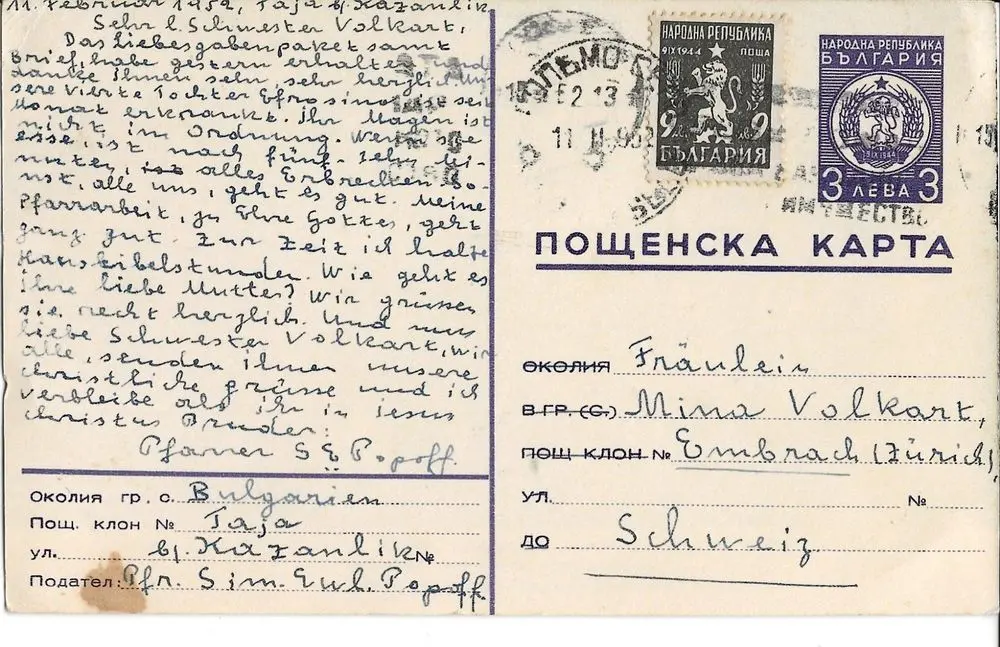 11. Februar 1952, Taja bj. Kazanlik
Sehr l. Schwester Volkart,
Das Liebesgabenpaket samt
Brief, habe gestern erhalten und
danke Ihnen sehr sehr herzlich. Un-
sere vierte Tochter Efrosina ist seit
Monat erkrankt. Ihr Magen ist
nicht im Ordnung. Wenn sie
esse, ist nach fünf-zehn Mi-
nuten, alles Erbrechen. So-
nst, alle uns, geht es gut. Meine
Pfarrarbeit, zu Ehre Gottes, geht
ganz gut. Zur Zeit ich halte
Hausbibelstunden. Wie geht es
Ihre liebe Mutter? Wir grüssen
sie recht herzlich. Und nun
liebe Schwester Volkart, wir
alle, senden ihnen unsere
christliche grüsse und ich
verbleibe als ihr in jesus
christus Bruder:
Pfarrer S E Popoff.
Околия гр. с. Bulgarien
Пощ. клон № Taja
ул. bj. Kazanlik №
Подател: Pfr. Sim. Ewl. Popoff.
НАРОДНА РЕПУБЛИКА
9 IX 1944 ПОЩА
9 лв 9
БЪЛГАРИЯ
НАРОДНА РЕПУБЛИКА
БЪЛГАРИЯ
9 IX 1944
3 ЛЕВА 3
11 II 952
ИМУЩЕСТВО
ПОЩЕНСКА КАРТА
ОКОЛИЯ Fräulein
В ГР. (С.) Mina Volkart,
ПОЩ КЛОН № Embrach (Zürich),
УЛ. №
ДО Schweiz